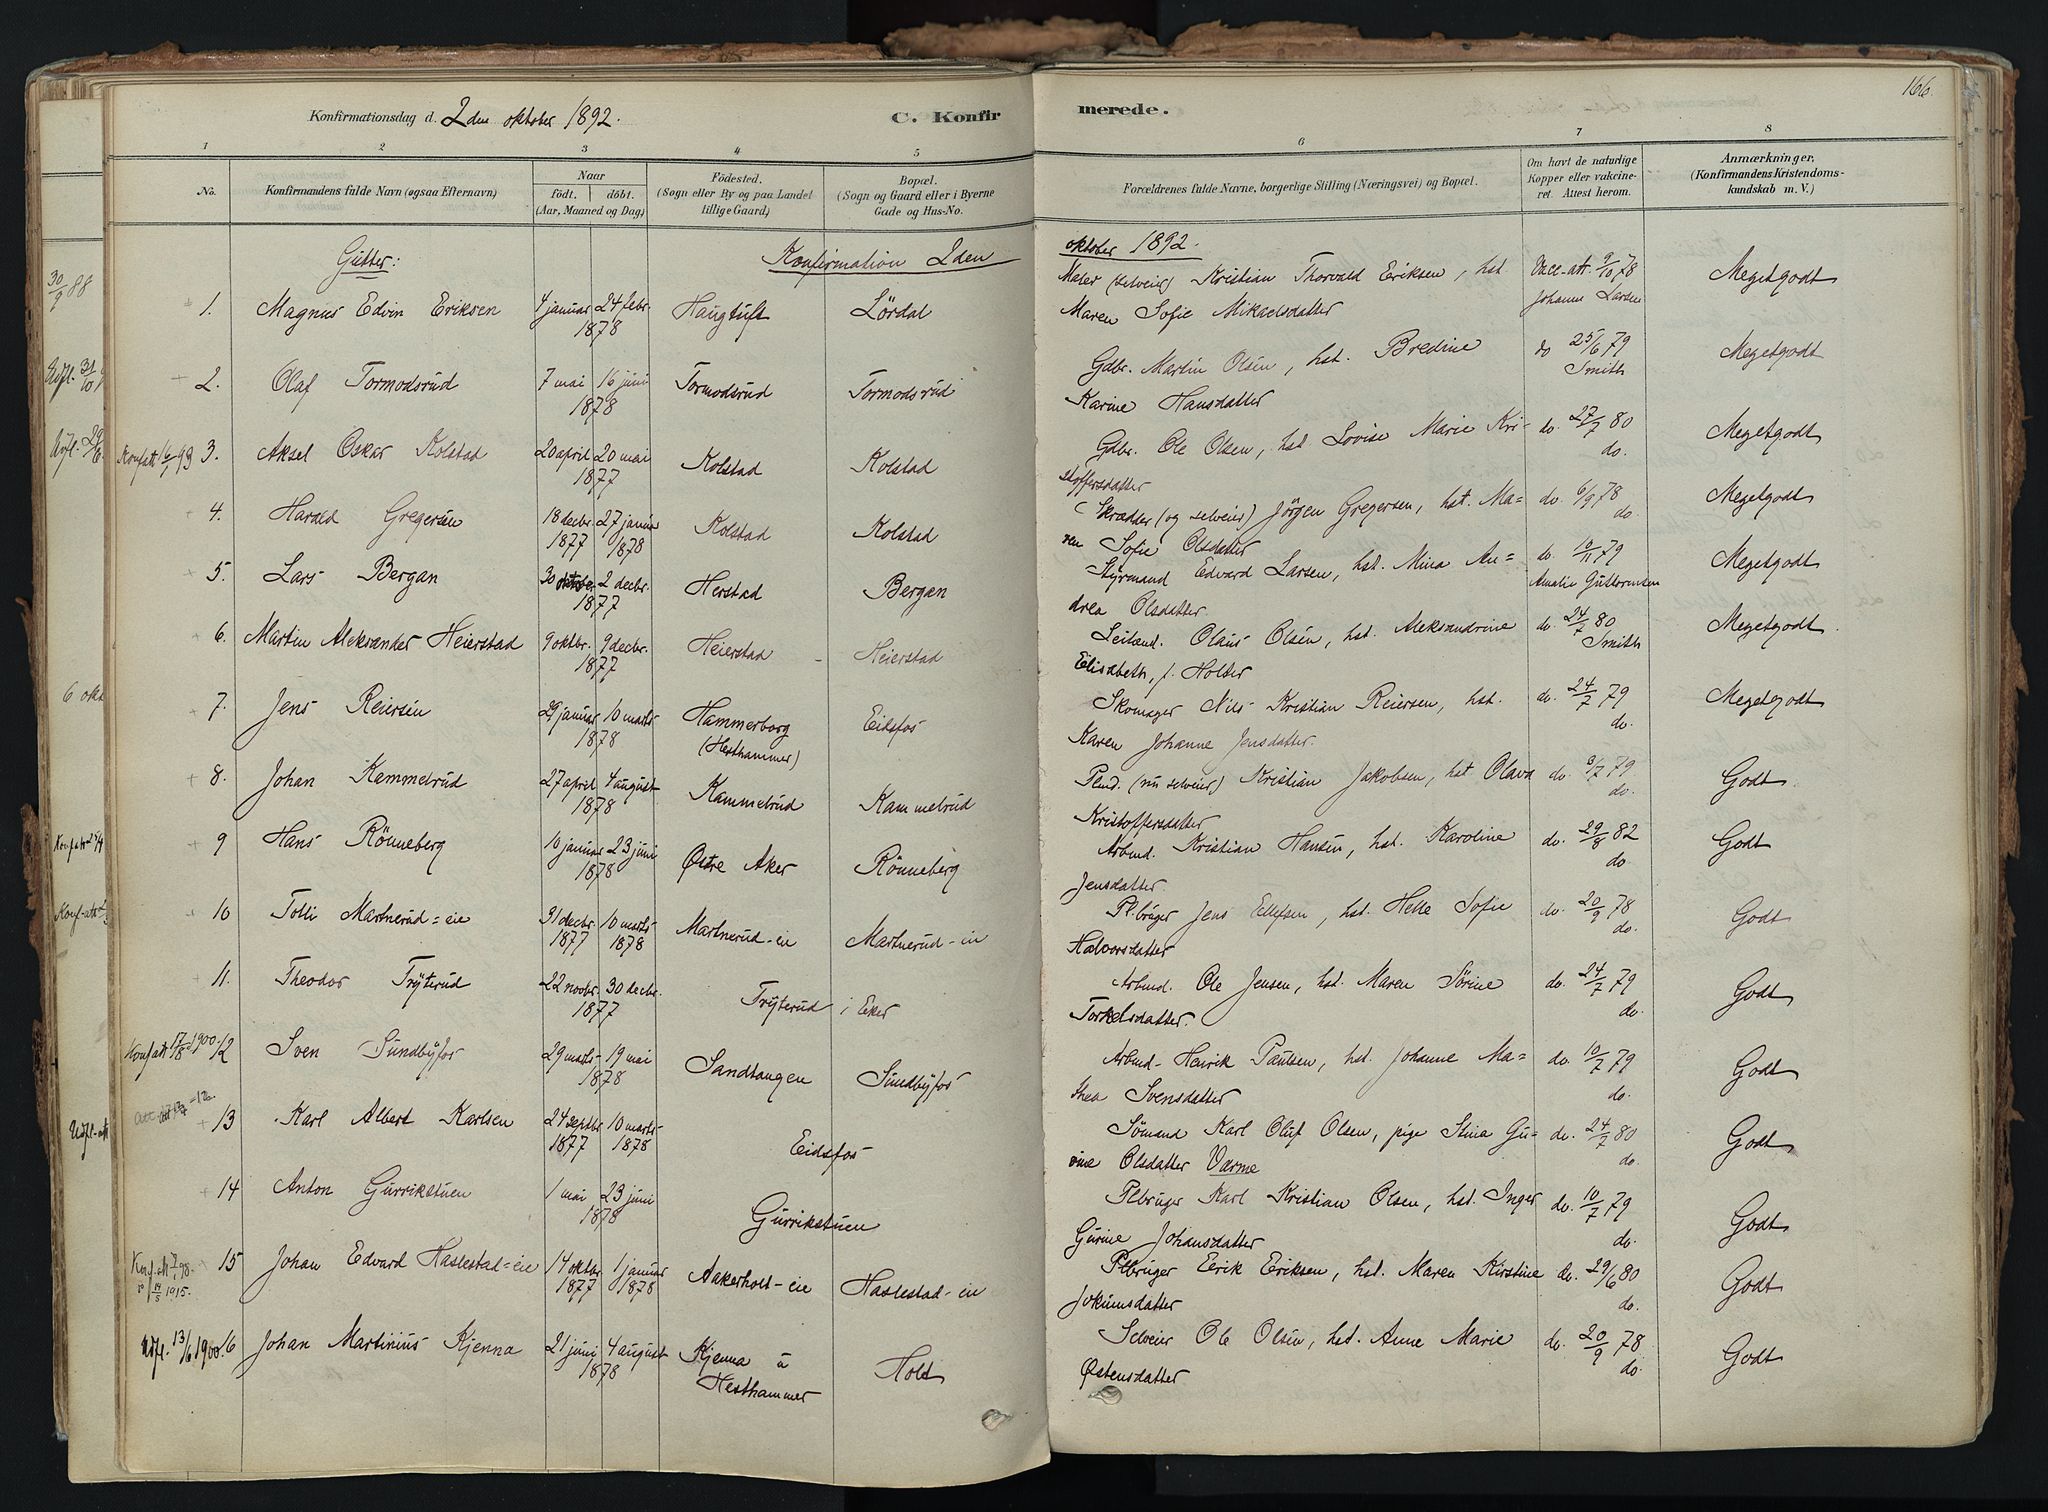 166.
Konfirmationsdag d. 2den oktober 1892.
C. Konfirmerede.
1 2 3 4 5 6 7 8
No.
Konfirmandens fulde Navn (ogsaa Efternavn)
Naar
födt. döbt.
(Aar, Maaned og Dag)
Födested.
(Sogn eller By og paa Landet
tillige Gaard)
Bopæl.
(Sogn og Gaard eller i Byerne
Gade og Hus-No.
Forældrenes fulde Navne, borgerlige Stilling (Næringsvei) og Bopæl.
Om havt de naturlige
Kopper eller vakcineret. Attest herom.
Anmærkninger,
(Konfirmandens Kristendomskundskab m. V.)
Gutter: Konfirmation 2den oktober 1892.
1. Magnus Edvin Eriksen 4 januar 24 febr. 1878 Haugtuft Lördal Maler (selveier) Kristian Thorvald Eriksen, hst. Vacc-att. 9/10 78 Megetgodt
Maren Sofie Mikaelsdatter Johanne Larsen
2. Olaf Tormodsrud 7 mai 16 juni 1878 Tormodsrud Tormodsrud Gdbr. Martin Olsen, hst. Bredine do 25/6 79 Megetgodt
Karine Hansdatter Smith
Konfatt 16/7 93 3. Aksel Oskar Kolstad 20 april 20 mai 1877 Kolstad Kolstad Gdbr. Ole Olsen, hst. Lovise Marie Kri- do. 27/7 80 Megetgodt
stoffersdatter do.
4. Harald Gregersen 18 decbr. 1877 27 januar 1878 Kolstad Kolstad Skrædder (og selveier) Jörgen Gregersen, hst. Ma= do. 6/9 78 Megetgodt
ren Sofie Olsdatter do.
5. Lars Bergan 30 oktober 2 decbr. 1877 Herstad Bergan Styrmand Edvard Larsen, hst. Mina An= do. 10/11 79 Megetgodt
drea Olsdatter. Amalie Guttormsen
6. Martin Aleksander Heierstad 9 oktbr. 9 decbr. 1877 Heierstad - Heierstad Leilænd. Olaus Olsen, hst. Aleksandrine do. 24/7 80 Megetgodt
Elisabeth, f. Holter Smith
7. Jens Reiersen 29 januar 10 marts 1878 Hammerborg (Hesthammer) Eidsfos Skomager Nils Kristian Reiersen, hst. do. 24/7 79 Megetgodt
Karen Johanne Jensdatter. do.
8. Johan Kammelrud 27 april 4 august 1878 Kammelrud Kammelrud Plsmd. (nu selveier) Kristian Jakobsen, hst Olava do. 3/7 79 Godt
Kristoffersdatter do.
9 Hans Rönneberg 10 januar 23 juni 1878 Østre Aker Rönneberg Arbmd. Kristian Hansen, hst. Karoline do. 29/8 82 Godt
Jensdatter. do
10 Tolli Martnerud=eie 31 decbr. 1877 10 marts 1878 Martnerud-eie Martnerud-eie Pl.bruger Jens Ellefsen, hst. Helle Sofie do. 20/9 78 Godt
Halvorsdatter do.
11. Theodor Tryterud 22 novbr. 30 decbr. 1877 Tryterud i Eker Arbmd. Ole Jensen, hst. Maren Sörine do. 24/7 79 Godt
Torkelsdatter. do.
Konfatt 17/8 1900. 12 Sven Sundbyfos 29 marts 19 mai 1878 Sandtangen Sundbyfos Arbmd. Henrik Paulsen, hst. Johanne Ma= do. 10/7 79 Godt
thea Svensdatter do.
13 Karl Albert Karlsen 24 septbr 1877 10 marts 1878 Eidsfos Sömand Karl Oluf Olsen, pige Stina Gu- do. 24/7 80 Godt
rine Olsdatter Varme do.
14 Anton Gurrikstuen 1 mai 23 juni 1878 Gurrikstuen Plbruger Karl Kristian Olsen, hst. Inger do. 10/7 79 Godt
Gurine Johansdatter do.
Konf. att 7/1 98. 15 Johan Edvard Haslestad=eie 14 oktbr 1877 1 januar 1878 Aakerholt-eie Haslestad-eie Plbruger Eerik Eriksen, hst. Maren Kirstine do. 29/6 80 Godt
Jokumsdatter do.
Udfl. 13/6 1900 16 Johan Martinius Kjenna 21 juni 4 august 1878 Kjenna u Hesthammer Holt Selveier Ole Olsen, hst. Anne Marie do. 20/9 78 Godt
Østensdatter do.
30/9 88
Udfl. 31/10
6 okt